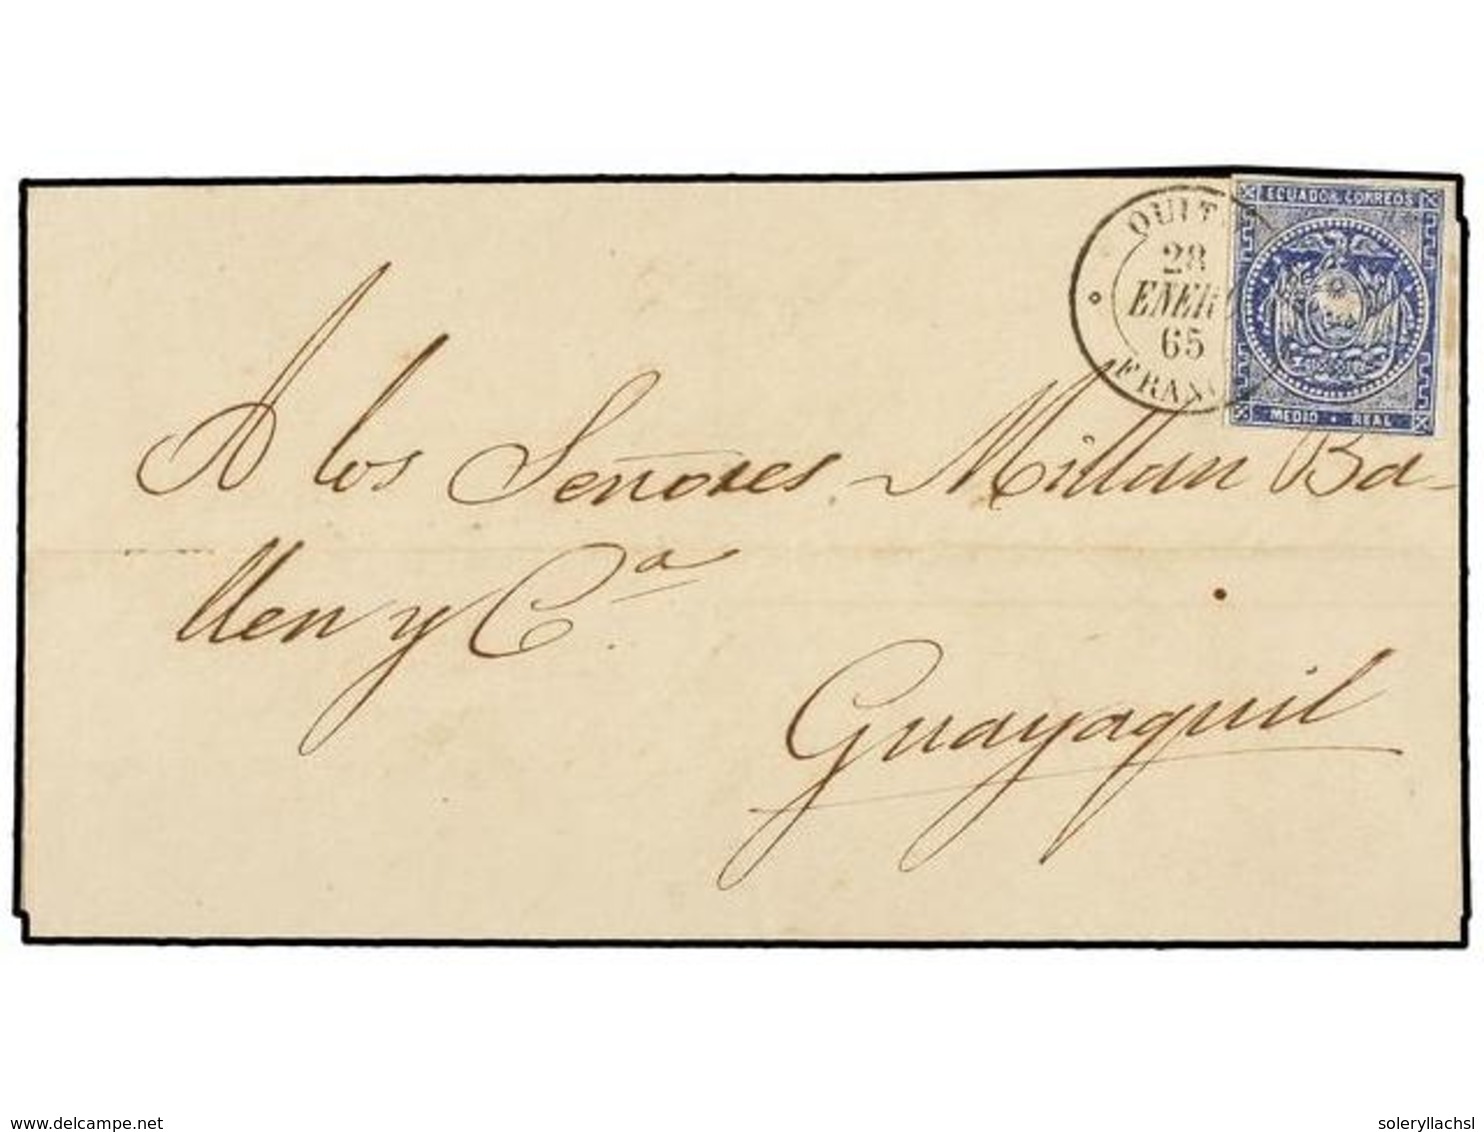 ECUADOR CORREOS
QUIT
28
ENER
65
FRANC
MEDIO . REAL
A los Señores Millan Ba-
llen y Cª
Guayaquil
delcampe.net
soleryllachsl